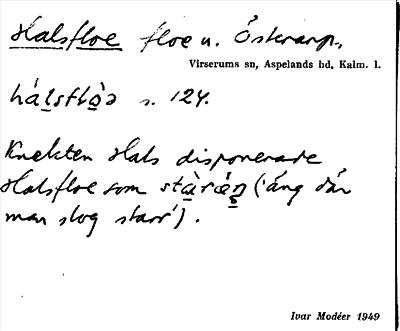 Halsfloe floe u. Österarp,
Virserums sn, Aspelands hd, Kalm. l.
hálsflò̱ə s. 124.
Knekten Hals disponerade
Halsfloe som stà̱rǻṉ ('äng där
man slog starr').
Ivar Modéer 1949